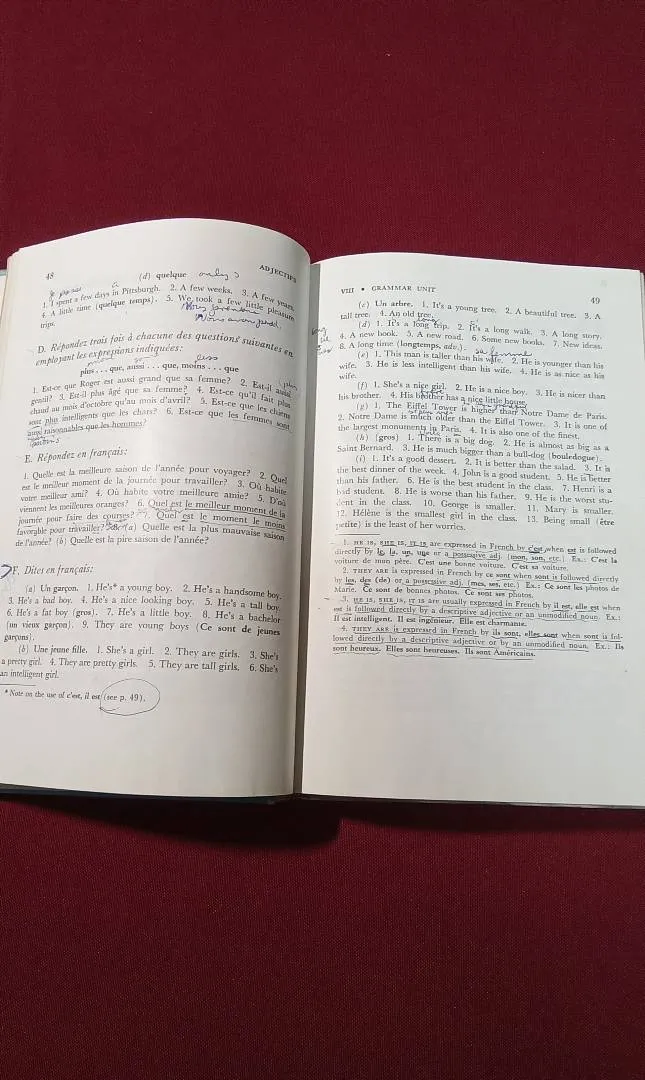 48
ADJECTIFS
(d) quelque only ?
1. I spent a few days in Pittsburgh. 2. A few weeks. 3. A few years.
4. A little time (quelque temps). 5. We took a few little pleasure
trips.
D. Répondez trois fois à chacune des questions suivantes en
employant les expressions indiquées:
less
plus . . . que, aussi . . . que, moins . . . que
1. Est-ce que Roger est aussi grand que sa femme? 2. Est-il aussi
gentil? 3. Est-il plus âgé que sa femme? 4. Est-ce qu'il fait plus
chaud au mois d'octobre qu'au mois d'avril? 5. Est-ce que les chiens
sont plus intelligents que les chats? 6. Est-ce que les femmes sont
aussi raisonnables que les hommes?
E. Répondez en français:
1. Quelle est la meilleure saison de l'année pour voyager? 2. Quel
est le meilleur moment de la journée pour travailler? 3. Où habite
votre meilleur ami? 4. Où habite votre meilleure amie? 5. D'où
viennent les meilleures oranges? 6. Quel est le meilleur moment de la
journée pour faire des courses? 7. Quel est le moment le moins
favorable pour travailler? 8. (a) Quelle est la plus mauvaise saison
de l'année? (b) Quelle est la pire saison de l'année?
F. Dites en français:
(a) Un garçon. 1. He's* a young boy. 2. He's a handsome boy.
3. He's a bad boy. 4. He's a nice looking boy. 5. He's a tall boy.
6. He's a fat boy (gros). 7. He's a little boy. 8. He's a bachelor
(un vieux garçon). 9. They are young boys (Ce sont de jeunes
garçons).
(b) Une jeune fille. 1. She's a girl. 2. They are girls. 3. She's
a pretty girl. 4. They are pretty girls. 5. They are tall girls. 6. She's
an intelligent girl.
* Note on the use of c'est, il est (see p. 49).
VIII • GRAMMAR UNIT
49
(c) Un arbre. 1. It's a young tree. 2. A beautiful tree. 3. A
tall tree. 4. An old tree.
(d) 1. It's a long trip. 2. It's a long walk. 3. A long story.
4. A new book. 5. A new road. 6. Some new books. 7. New ideas.
8. A long time (longtemps, adv.).
sa femme
(e) 1. This man is taller than his wife. 2. He is younger than his
wife. 3. He is less intelligent than his wife. 4. He is as nice as his
wife.
(f) 1. She's a nice girl. 2. He is a nice boy. 3. He is nicer than
his brother. 4. His brother has a nice little house.
(g) 1. The Eiffel Tower is higher than Notre Dame de Paris.
2. Notre Dame is much older than the Eiffel Tower. 3. It is one of
the largest monuments in Paris. 4. It is also one of the finest.
(h) (gros) 1. There is a big dog. 2. He is almost as big as a
Saint Bernard. 3. He is much bigger than a bull-dog (bouledogue).
(i) 1. It's a good dessert. 2. It is better than the salad. 3. It is
the best dinner of the week. 4. John is a good student. 5. He is better
than his father. 6. He is the best student in the class. 7. Henri is a
bad student. 8. He is worse than his father. 9. He is the worst stu-
dent in the class. 10. George is smaller. 11. Mary is smaller.
12. Hélène is the smallest girl in the class. 13. Being small (être
petite) is the least of her worries.
1. HE IS, SHE IS, IT IS are expressed in French by c'est when est is followed
directly by le, la, un, une or a possessive adj. (mon, son, etc.) Ex.: C'est la
voiture de mon père. C'est une bonne voiture. C'est sa voiture.
2. THEY ARE is expressed in French by ce sont when sont is followed directly
by les, des (de) or a possessive adj. (mes, ses, etc.) Ex.: Ce sont les photos de
Marie. Ce sont de bonnes photos. Ce sont ses photos.
3. HE IS, SHE IS, IT IS are usually expressed in French by il est, elle est when
est is followed directly by a descriptive adjective or an unmodified noun. Ex.:
Il est intelligent. Il est ingénieur. Elle est charmante.
4. THEY ARE is expressed in French by ils sont, elles sont when sont is fol-
lowed directly by a descriptive adjective or by an unmodified noun. Ex.: Ils
sont heureux. Elles sont heureuses. Ils sont Américains.